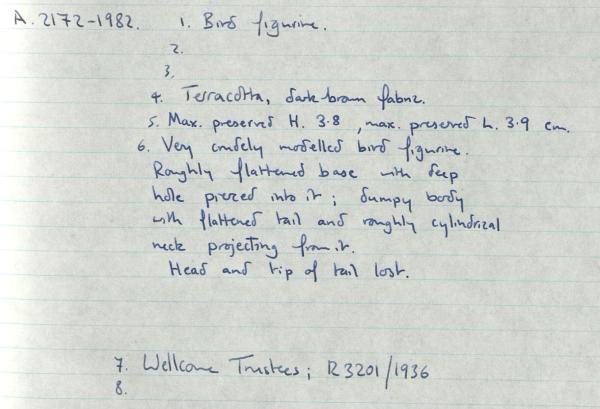 A. 2172-1982. 1. Bird figurine.
2.
3.
4. Terracotta, dark brown fabric.
5. Max. preserved H. 3.8, max. preserved L. 3.9 cm.
6. Very crudely modelled bird figurine.
Roughly flattened base with deep
hole pierced into it; dumpy body
with flattened tail and roughly cylindrical
neck projecting from it.
Head and tip of tail lost.
7. Wellcome Trustees; R3201/1936
8.